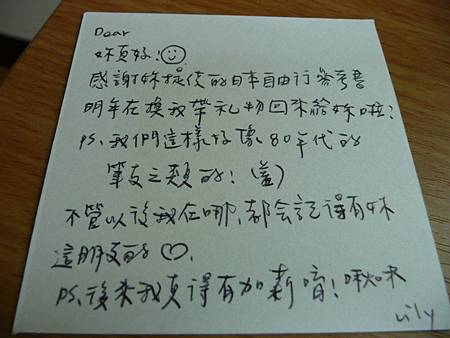 Dear
妳真好!
感謝妳提供的日本自由行參考書
明年在換我帶礼物回來給妳啦!
PS、我們這樣好像80年代的
筆友之類的!(羞)
不管以後我在哪,都会記得有妳
這朋友的♡.
PS、後來我真得有加薪唷!啾咪
Lily